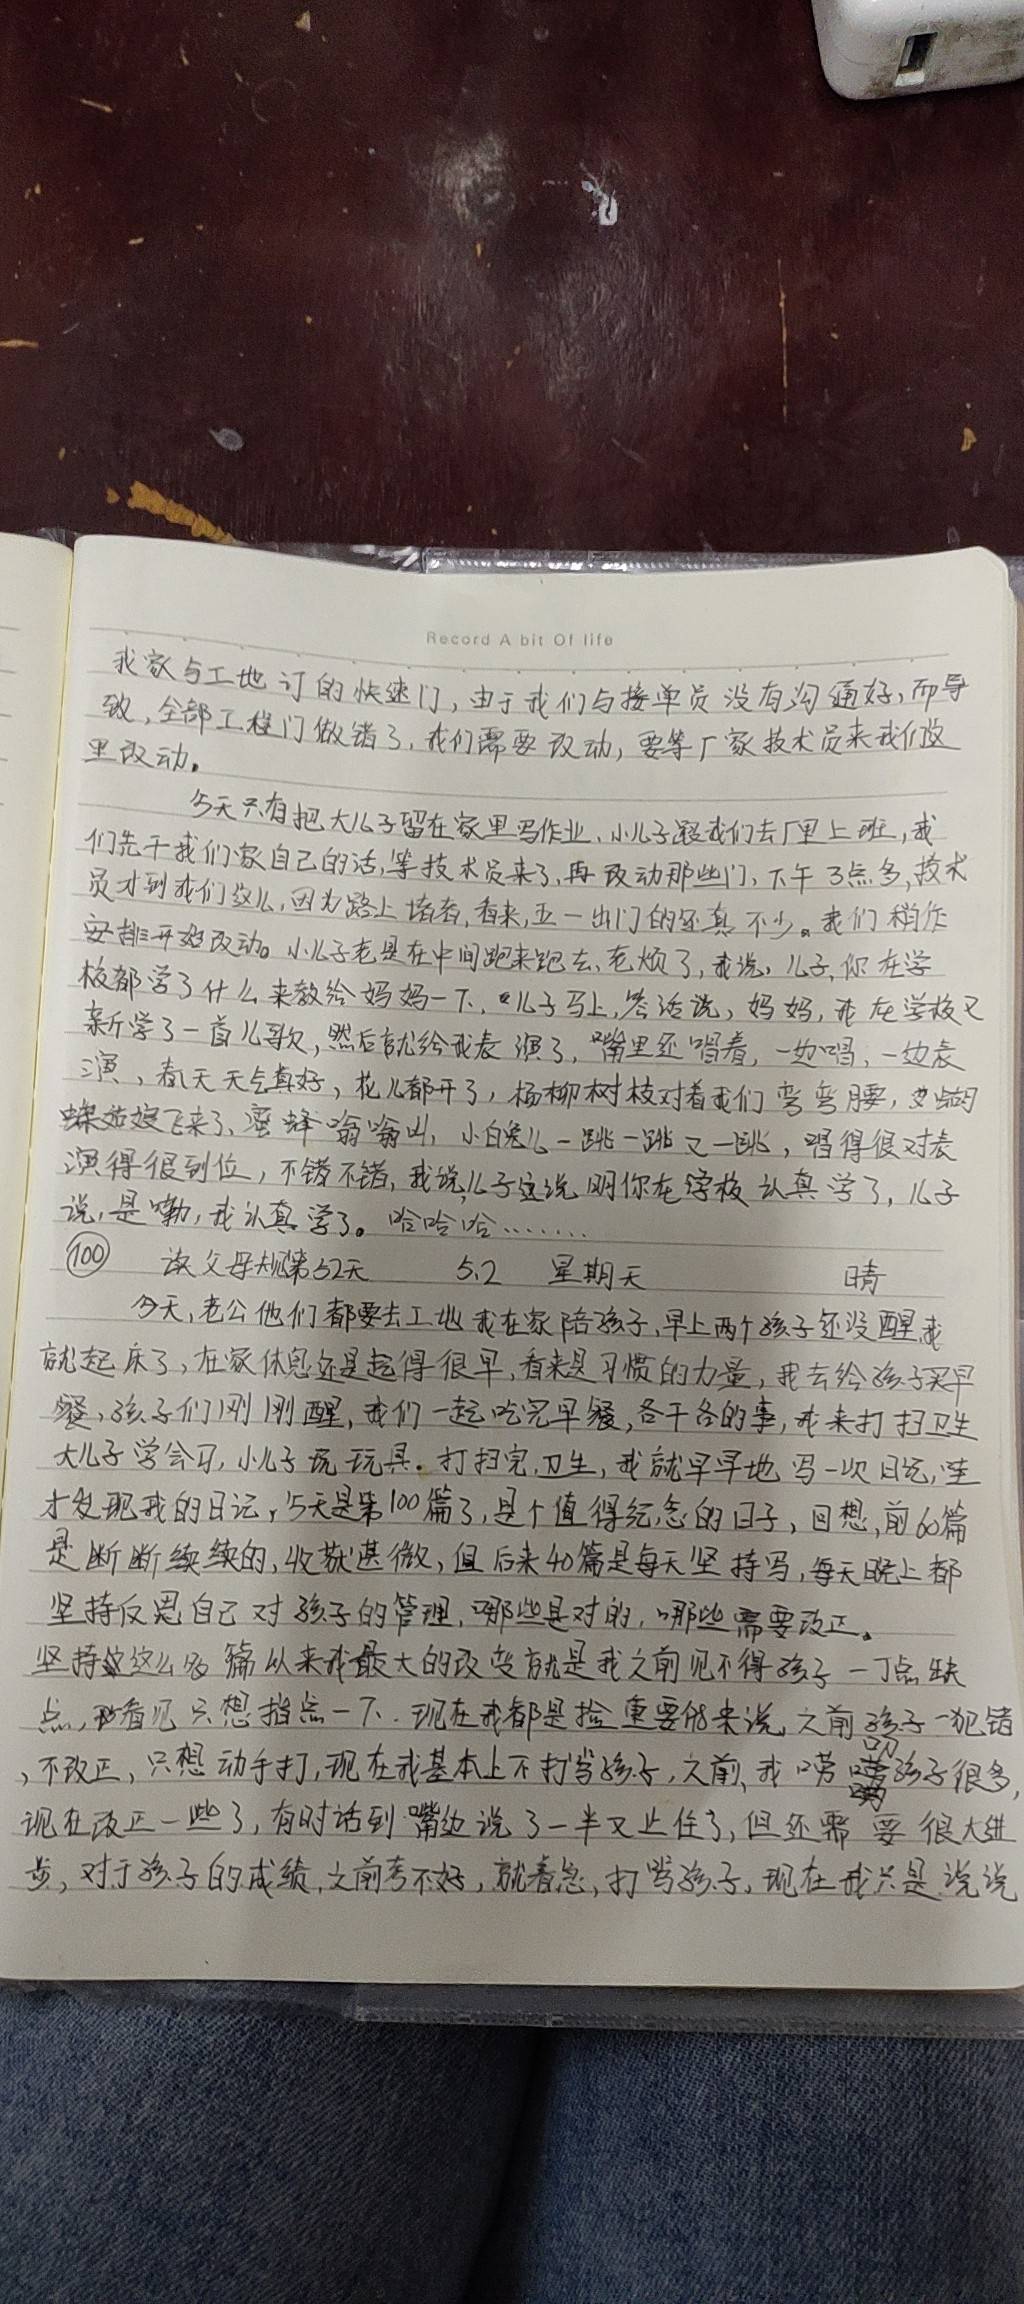 Record A bit Of life
我家与工地订的快速门，由于我们与接单员没有沟通好，而导
致，全部工程门做错了，我们需要改动，要等厂家技术员来我们这
里改动。
今天只有把大儿子留在家里写作业、小儿子跟我们去厂里上班，我
们先干我们家自己的活，等技术员来了，再改动那些门，下午3点多，技术
员才到我们这儿，因为路上堵车，看来，五一出门的还真不少。我们稍作
安排开始改动。小儿子老是在中间跑来跑去，老烦了，我说，儿子，你在学
校都学了什么来教给妈妈一下，儿子马上，答话说，妈妈，我在学校又
新学了一首儿歌，然后就给我表演了，嘴里还唱着，一边唱，一边表
演，春天天气真好，花儿都开了，杨柳树枝对着我们弯弯腰，蝴
蝶姑娘飞来了、蜜蜂嗡嗡叫，小白兔儿一跳一跳又一跳，唱得很对表
演得很到位，不错不错，我说，儿子这说明你在学校认真学了，儿子
说，是嘞，我认真学了。哈哈哈……
100 读父母规第52天 5.2 星期天 晴
今天，老公他们都要去工地我在家陪孩子，早上两个孩子还没醒，我
就起床了，在家休息还是起得很早，看来是习惯的力量，我去给孩子买早
餐，孩子们刚刚醒，我们一起吃完早餐，各干各的事，我来打扫卫生
大儿子学习，小儿子玩玩具。打扫完，卫生，我就早早地写一次日记，
才发现我的日记，今天是第100篇了，是个值得纪念的日子，回想，前60篇
是断断续续的，收获甚微，但后来40篇是每天坚持写，每天晚上都
坚持反思自己对孩子的管理，哪些是对的，哪些需要改正。
坚持这么多篇以来我最大的改变就是我之前见不得孩子一丁点缺
点，看见只想指点一下．现在我都是捡重要的来说，之前孩子一犯错
、不改正，只想动手打，现在我基本上不打骂孩子，之前，我唠叨孩子很多，
现在改正一些了，有时话到嘴边说了一半又止住了，但还需要很大进
步，对于孩子的成绩，之前考不好，就着急，打骂孩子，现在我只是说说